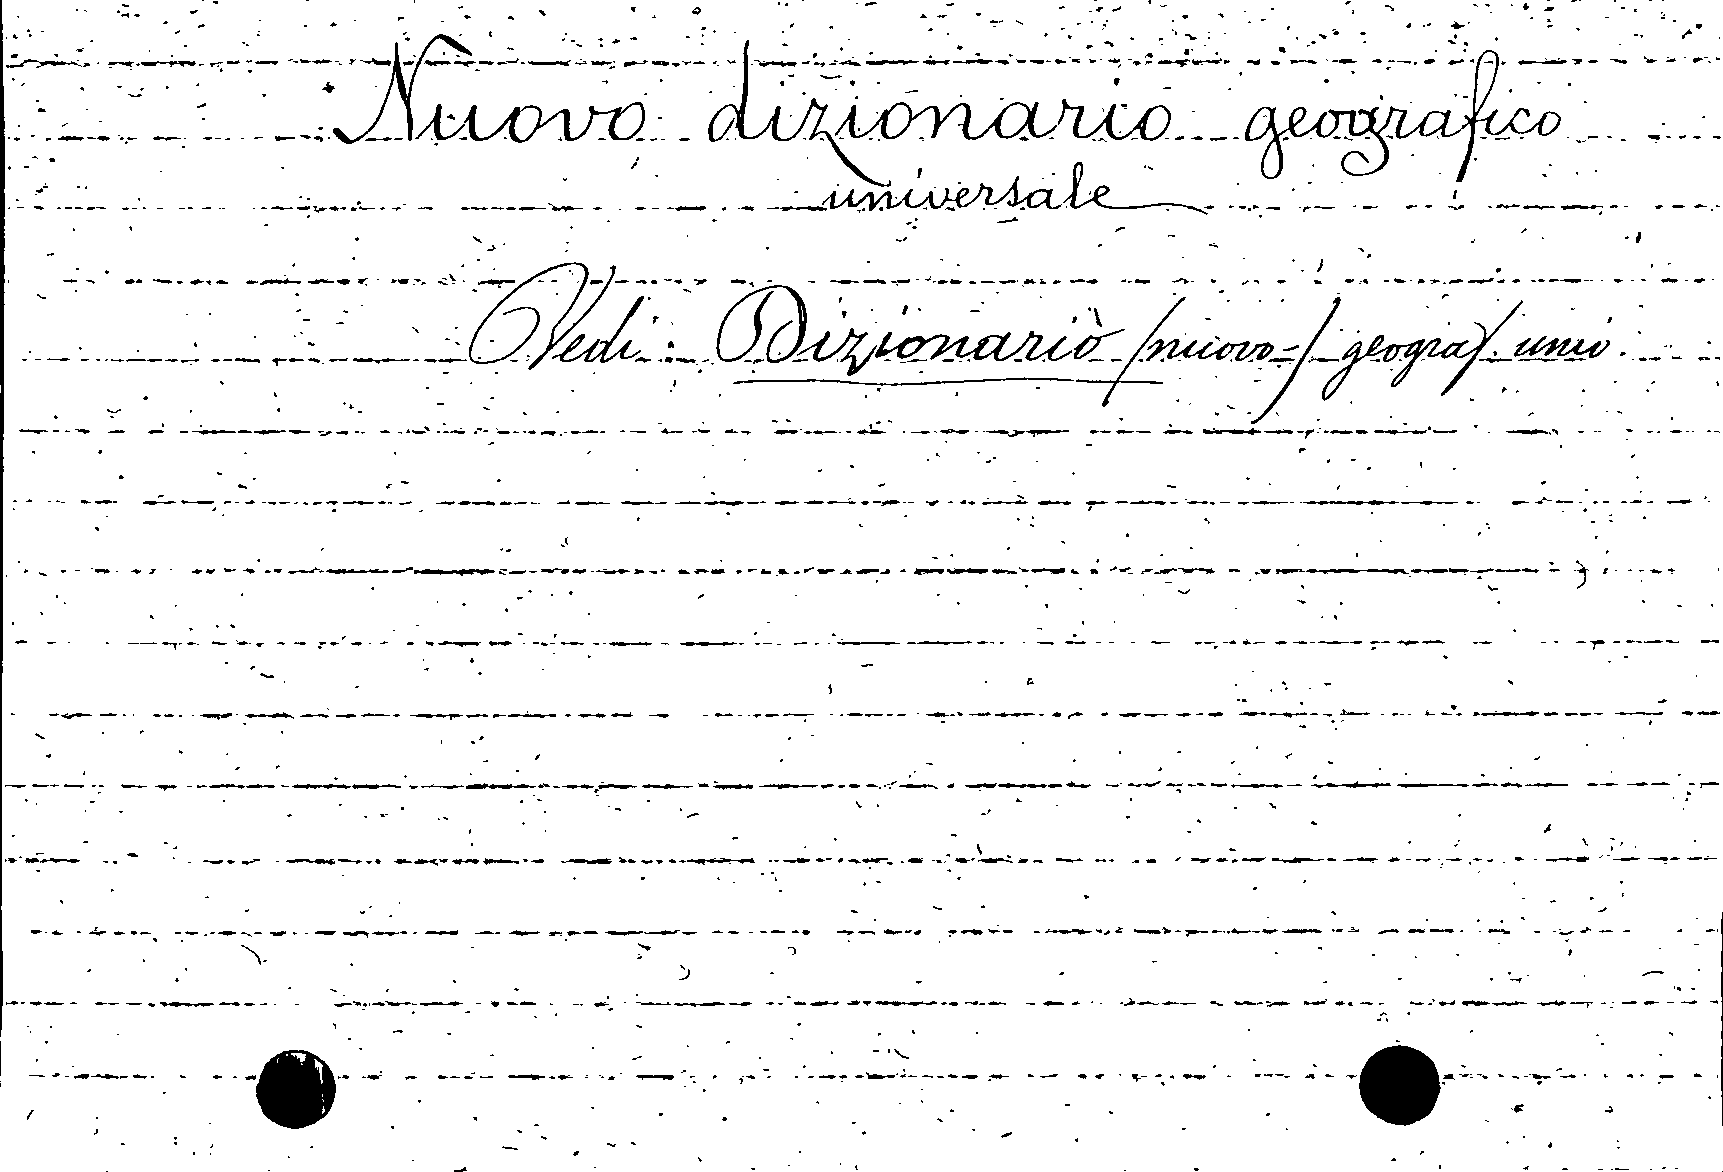 Nuovo dizionario geografico
universale
Vedi: Dizionario (nuovo-) geograf. univ.